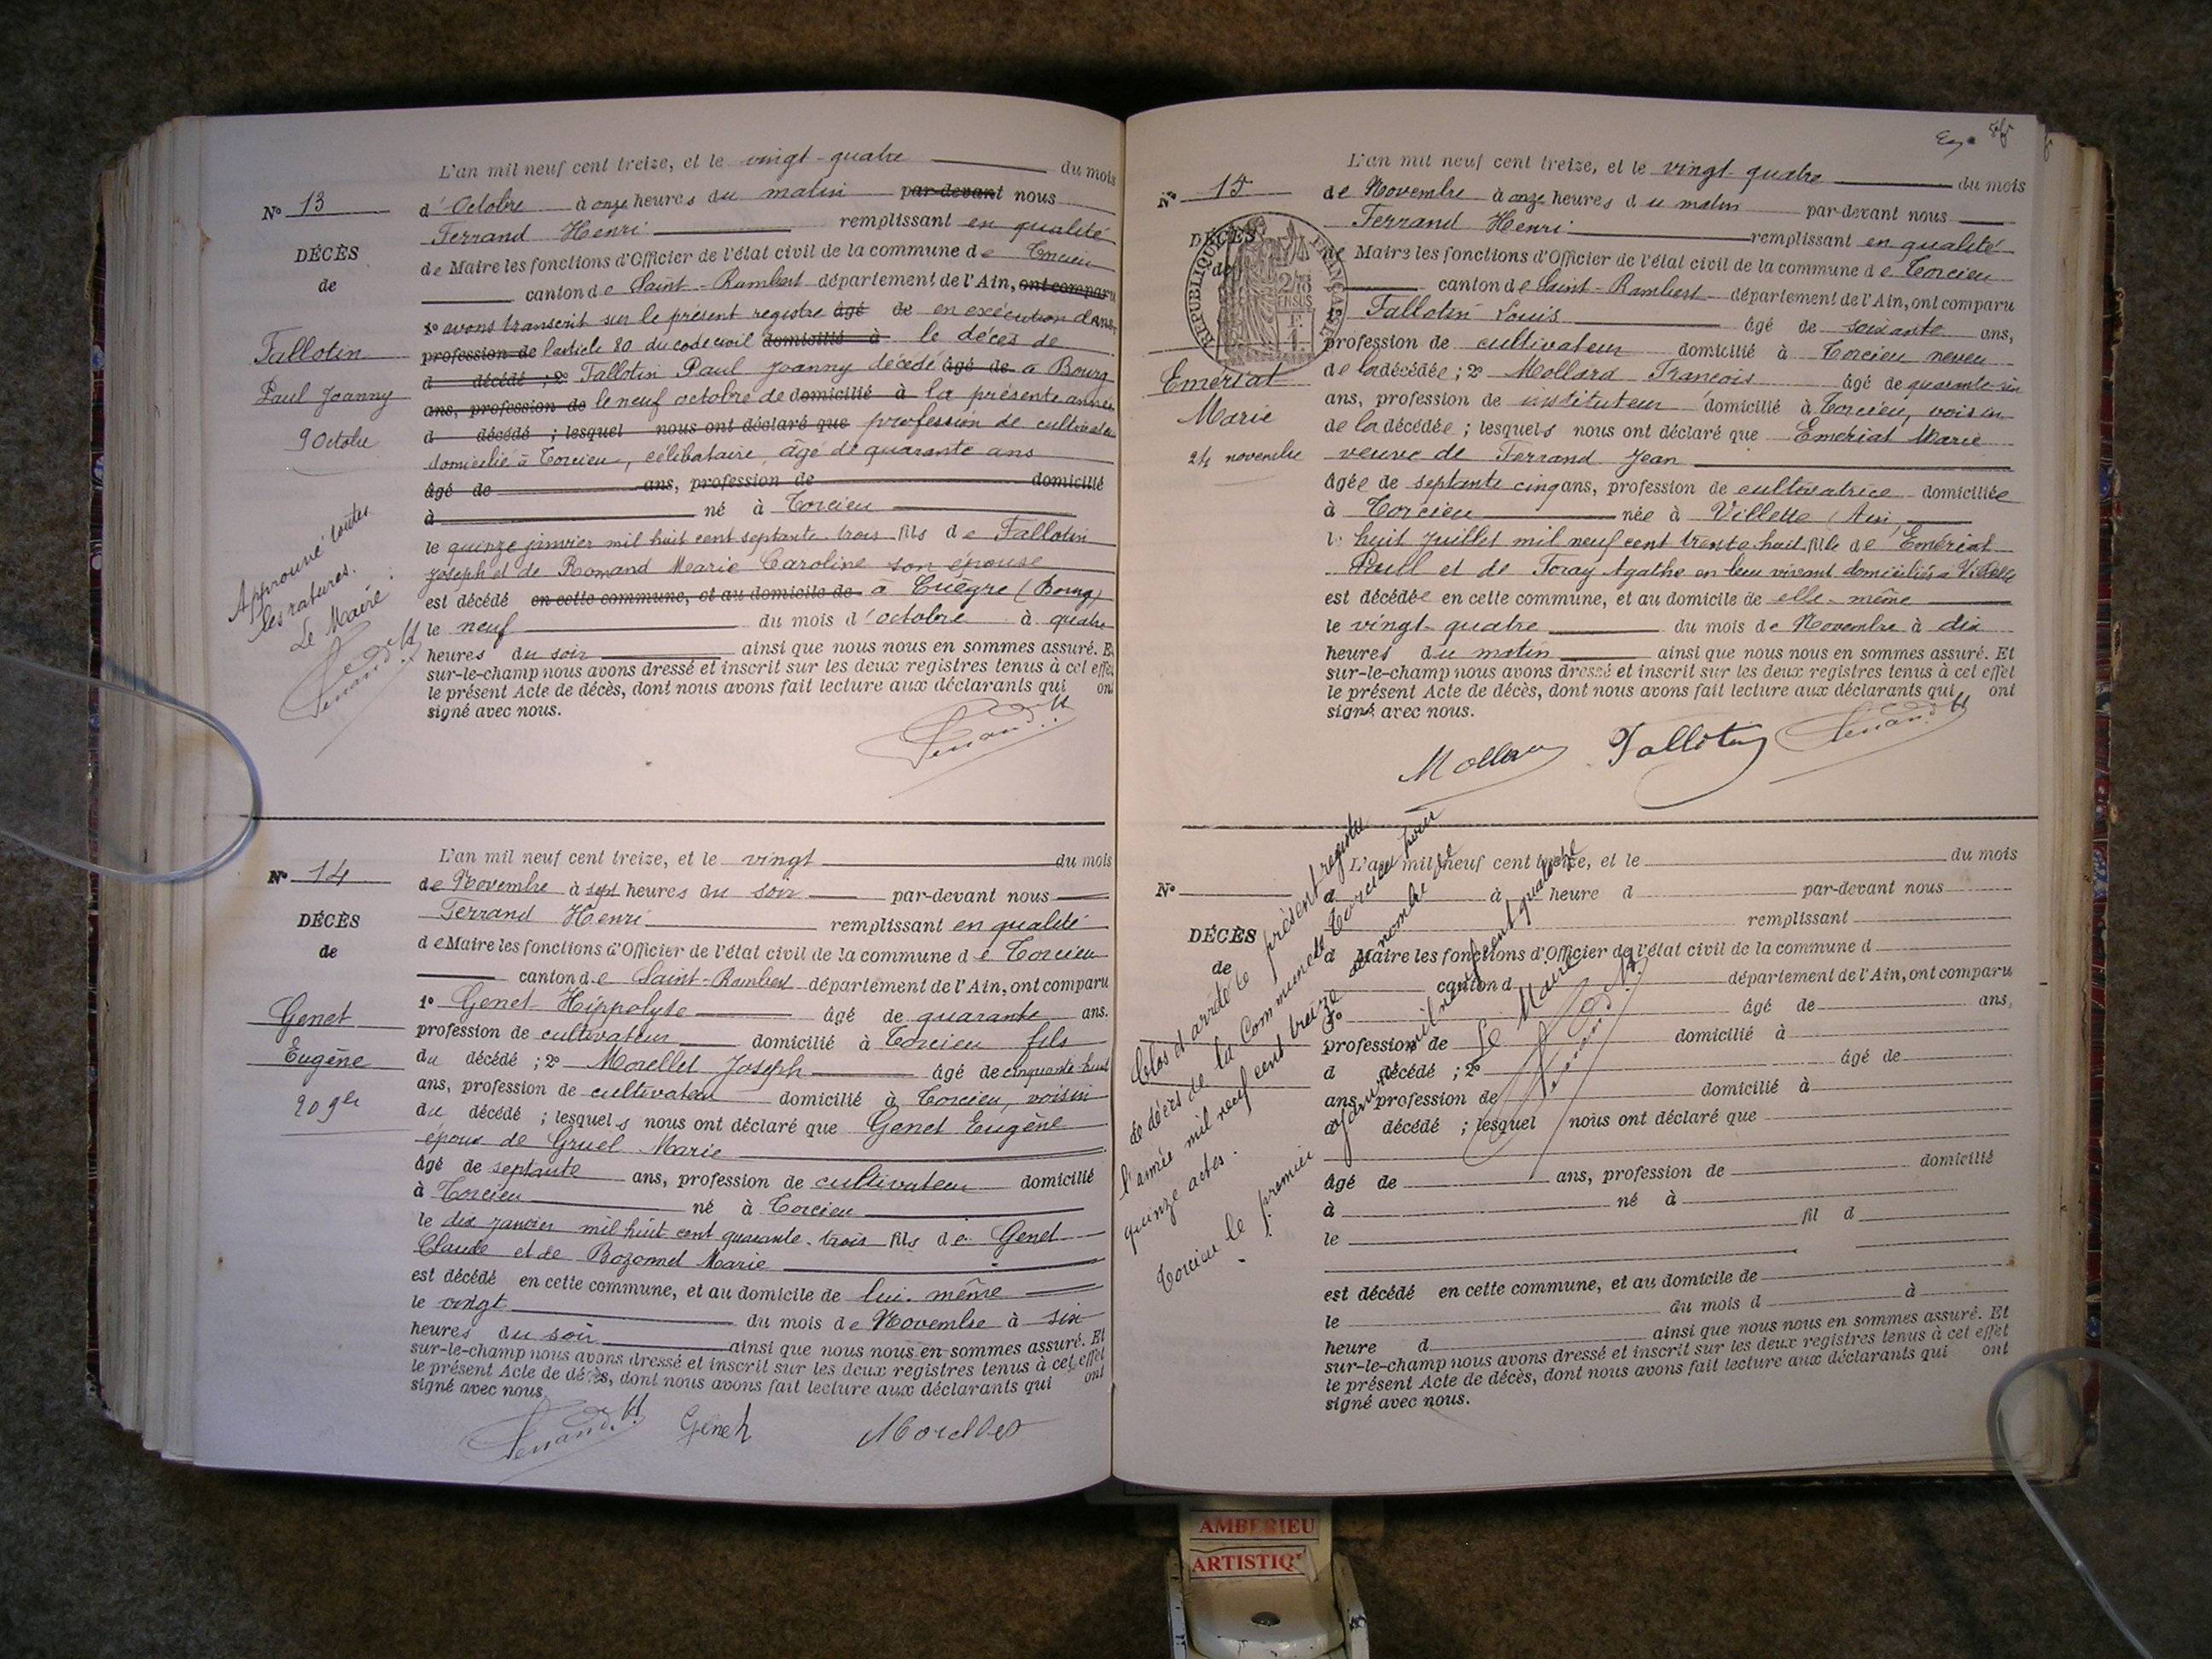 L'an mil neuf cent treize, et le vingt-quatre du mois
N° 13
d'Octobre à onze heures du matin par-devant nous
Ferrand Henri remplissant en qualité
DÉCÈS
de
de Maire les fonctions d'Officier de l'état civil de la commune de Torcieu
canton de Saint-Rambert département de l'Ain, ont comparu
1° avons transcrit sur le présent registre âgé de en exécution dans
Fallotin
Paul Joanny
9 Octobre
profession de l'article 80 du code civil domicilié à le décès de
d décédé ; 2° Fallotin Paul Joanny décédé âgé de à Bourg
ans, profession de le neuf octobre de domicilié à la présente année
d décédé ; lesquel nous ont déclaré que profession de cultivateur
domicilié à Torcieu, célibataire, âgé de quarante ans
âgé de ans, profession de domicilié
à né à Torcieu
le quinze janvier mil huit cent septante-trois fils de Fallotin
Joseph et de Romand Marie Caroline son épouse
est décédé en cette commune, et au domicile de à Cuègre (Bourg)
le neuf du mois d'octobre à quatre
heures du soir ainsi que nous nous en sommes assuré. Et
sur-le-champ nous avons dressé et inscrit sur les deux registres tenus à cet effet
le présent Acte de décès, dont nous avons fait lecture aux déclarants qui ont
signé avec nous.
Approuvé toutes
les ratures.
Le Maire :
Ferrand H
Ferrand H
N° 14
L'an mil neuf cent treize, et le vingt du mois
de Novembre à sept heures du soir par-devant nous
Ferrand Henri remplissant en qualité
DÉCÈS
de
de Maire les fonctions d'Officier de l'état civil de la commune de Torcieu
canton de Saint-Rambert département de l'Ain, ont comparu
Genet
Eugène
20 9bre
1° Genet Hippolyte âgé de quarante ans.
profession de cultivateur domicilié à Torcieu fils
du décédé ; 2° Morellet Joseph âgé de cinquante-huit
ans, profession de cultivateur domicilié à Torcieu, voisin
du décédé ; lesquels nous ont déclaré que Genet Eugène
époux de Gruel Marie
âgé de septante ans, profession de cultivateur domicilié
à Torcieu né à Torcieu
le dix janvier mil huit cent quarante-trois fils de Genet
Claude et de Bozonnet Marie
est décédé en cette commune, et au domicile de lui-même
le vingt du mois de Novembre à six
heures du soir ainsi que nous nous en sommes assuré. Et
sur-le-champ nous avons dressé et inscrit sur les deux registres tenus à cet effet
le présent Acte de décès, dont nous avons fait lecture aux déclarants qui ont
signé avec nous.
Ferrand H Genet Morellet
L'an mil neuf cent treize, et le vingt-quatre du mois
N° 15
de Novembre à onze heures du matin par-devant nous
Ferrand Henri remplissant en qualité
DÉCÈS
de
RÉPUBLIQUE FRANÇAISE
de Maire les fonctions d'Officier de l'état civil de la commune de Torcieu
canton de Saint-Rambert département de l'Ain, ont comparu
1° Fallotin Louis âgé de soixante ans,
Emériat
Marie
24 novembre
profession de cultivateur domicilié à Torcieu neveu
de la décédée ; 2° Mollard François âgé de quarante-six
ans, profession de instituteur domicilié à Torcieu, voisin
de la décédée ; lesquels nous ont déclaré que Emériat Marie
veuve de Ferrand Jean
âgée de septante cinq ans, profession de cultivatrice domiciliée
à Torcieu née à Villette (Ain)
le huit Juillet mil neuf cent trente huit fille de Emériat
et de Foray Agathe en leur vivant domiciliés à Villette
est décédée en cette commune, et au domicile de elle-même
le vingt-quatre du mois de Novembre à dix
heures du matin ainsi que nous nous en sommes assuré. Et
sur-le-champ nous avons dressé et inscrit sur les deux registres tenus à cet effet
le présent Acte de décès, dont nous avons fait lecture aux déclarants qui ont
signé avec nous.
Mollard Fallotin Ferrand H
L'an mil neuf cent treize, et le du mois
N°
à heure d par-devant nous
remplissant
DÉCÈS
de
d Maire les fonctions d'Officier de l'état civil de la commune d
canton d département de l'Ain, ont comparu
1° âgé de ans,
profession de domicilié à
d décédé ; 2° âgé de
ans, profession de domicilié à
d décédé ; lesquel nous ont déclaré que
âgé de ans, profession de domicilié
à né à
le fil d
est décédé en cette commune, et au domicile de
le du mois d à
heure d ainsi que nous nous en sommes assuré. Et
sur-le-champ nous avons dressé et inscrit sur les deux registres tenus à cet effet
le présent Acte de décès, dont nous avons fait lecture aux déclarants qui ont
signé avec nous.
Clos et arrêté le présent registre
de décès de la Commune de Torcieu pour
l'année mil neuf cent treize au nombre de
quinze actes.
Torcieu le premier Janvier mil neuf cent quatorze
Le Maire
Ferrand H
AMBERIEU
ARTISTIQ